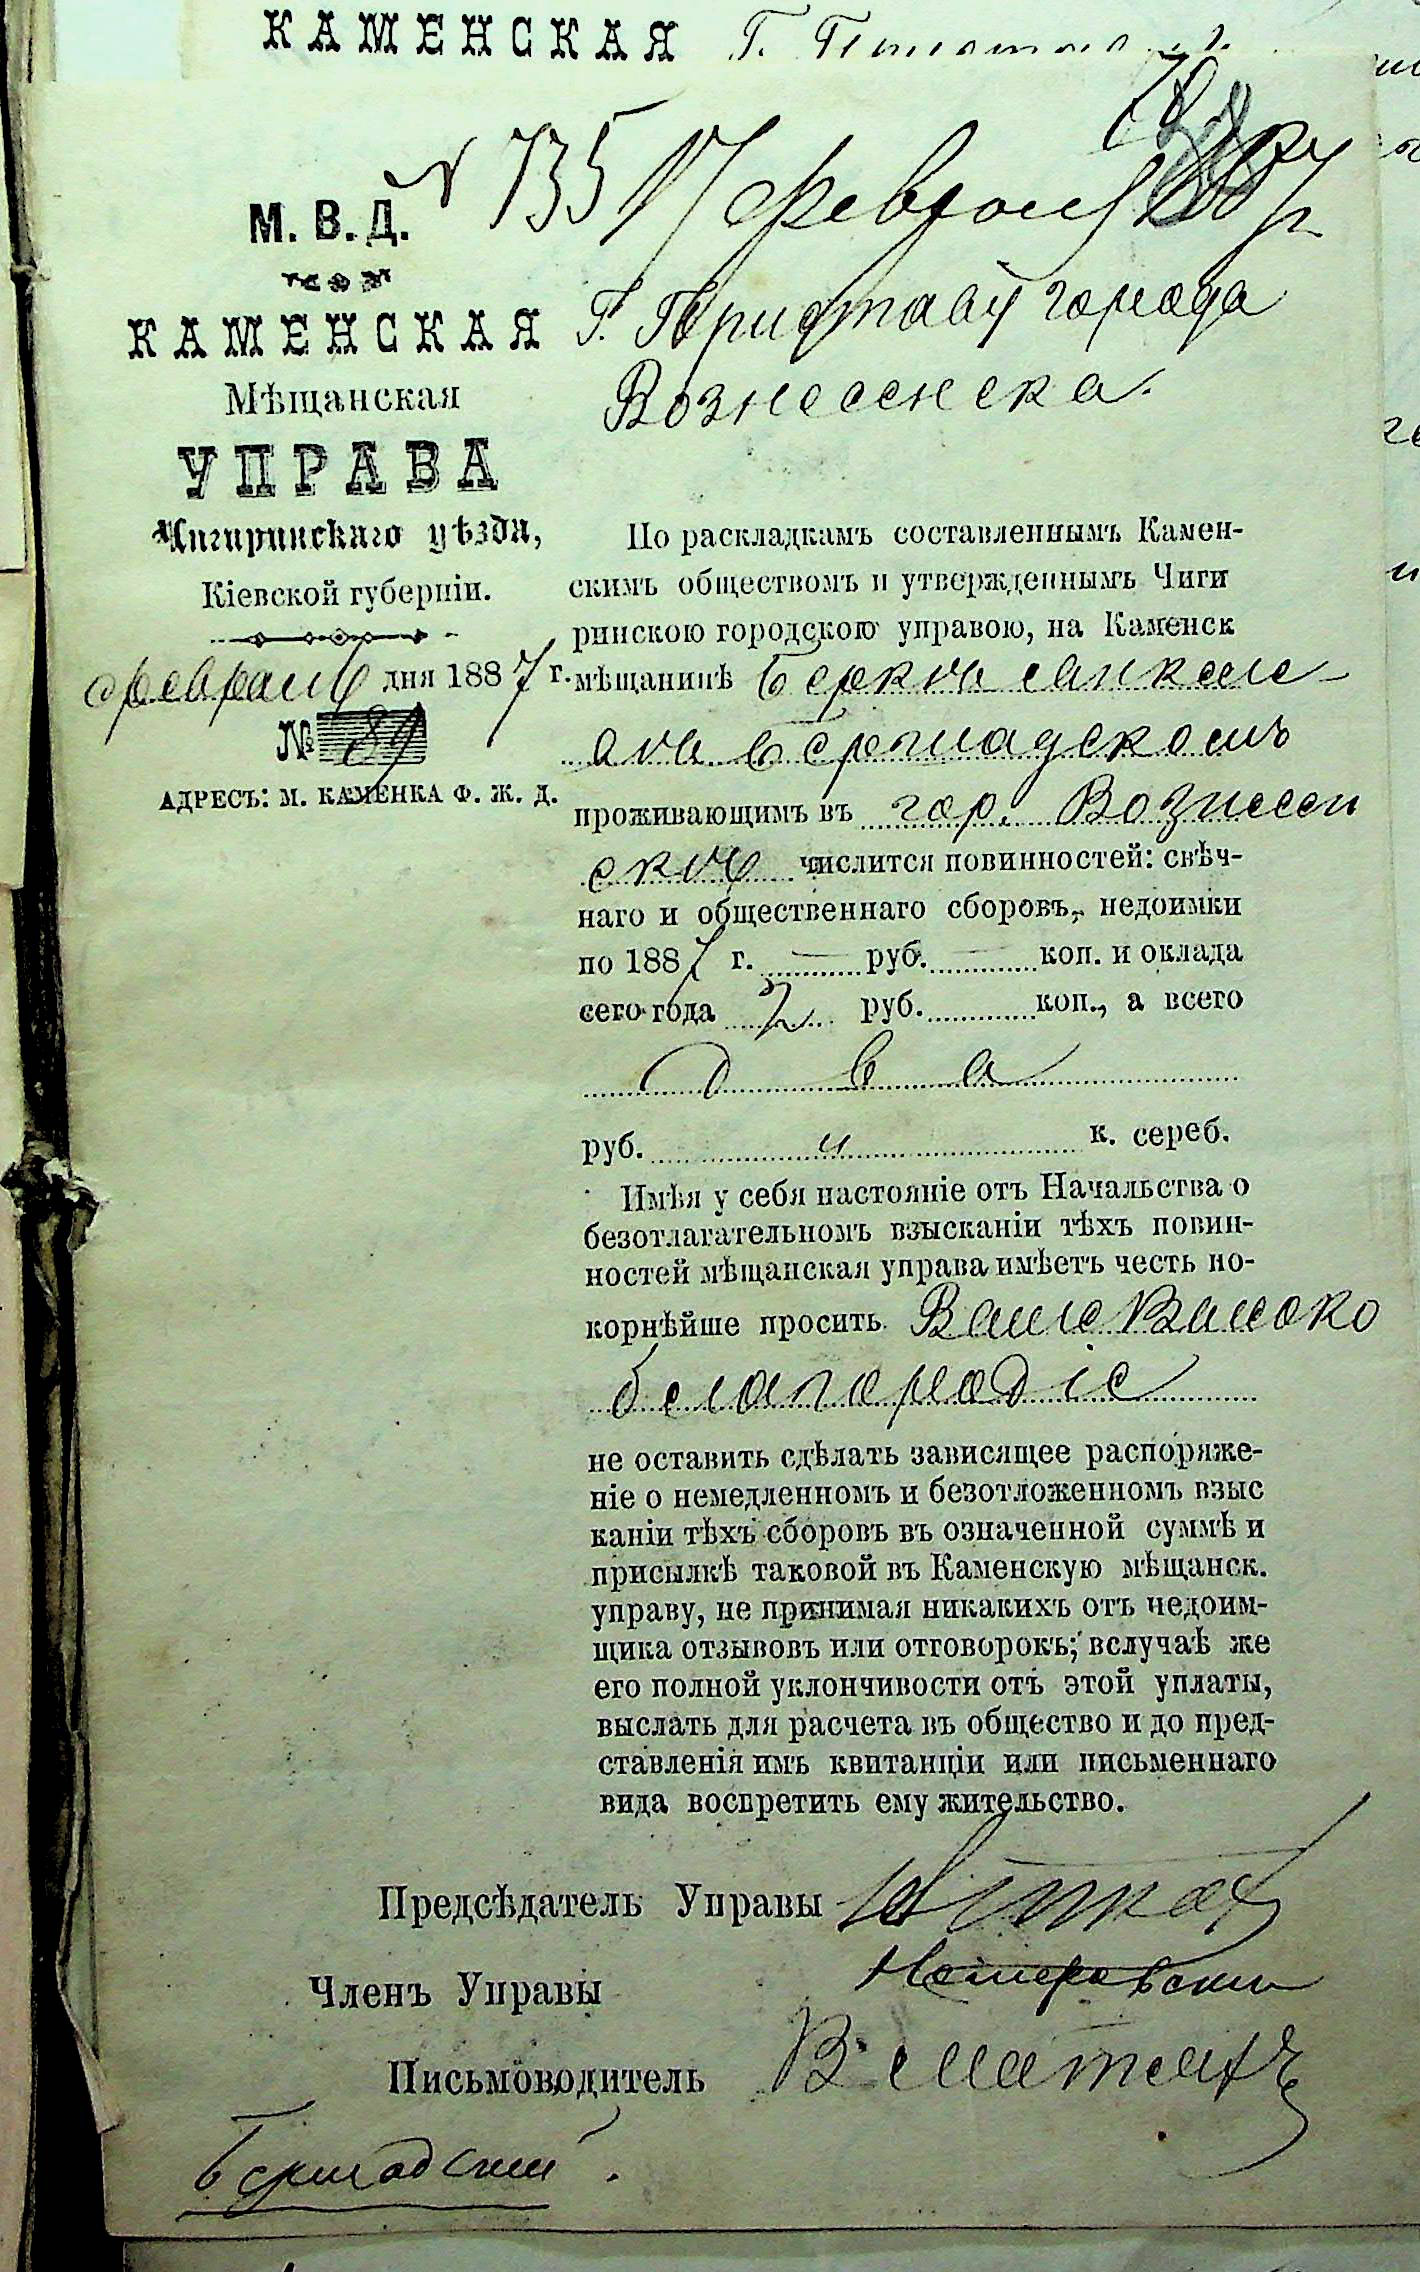 КАМЕНСКАЯ
№ 735 17 февраля 1887 г.
М. В. Д.
КАМЕНСКАЯ
Мѣщанская
УПРАВА
Чигиринскаго уѣзда,
Кіевской губерніи.
февраля дня 1887 г.
№ 89
АДРЕСЪ: М. КАМЕНКА Ф. Ж. Д.
Г. Приставу города
Вознесенска.
По раскладкамъ составленнымъ Камен-
скимъ обществомъ и утвержденнымъ Чиги
ринскою городскою управою, на Каменск
мѣщанинѣ Беркѣ
Бершадскомъ
проживающимъ въ гор. Вознесен
скѣ числится повинностей: свѣч-
наго и общественнаго сборовъ, недоимки
по 1887 г. — руб. — коп. и оклада
сего года 2 руб. коп., а всего
два
руб. и к. сереб.
Имѣя у себя настояніе отъ Начальства о
безотлагательномъ взысканіи тѣхъ повин-
ностей мѣщанская управа имѣетъ честь по-
корнѣйше просить Ваше Высоко
благородіе
не оставить сдѣлать зависящее распоряже-
ніе о немедленномъ и безотложенномъ взыс
каніи тѣхъ сборовъ въ означенной суммѣ и
присылкѣ таковой въ Каменскую мѣщанск.
управу, не принимая никакихъ отъ недоим-
щика отзывовъ или отговорокъ; вслучаѣ же
его полной уклончивости отъ этой уплаты,
выслать для расчета въ общество и до пред-
ставленія имъ квитанціи или письменнаго
вида воспретить ему жительство.
Предсѣдатель Управы
Членъ Управы
Письмоводитель
Бершадский.